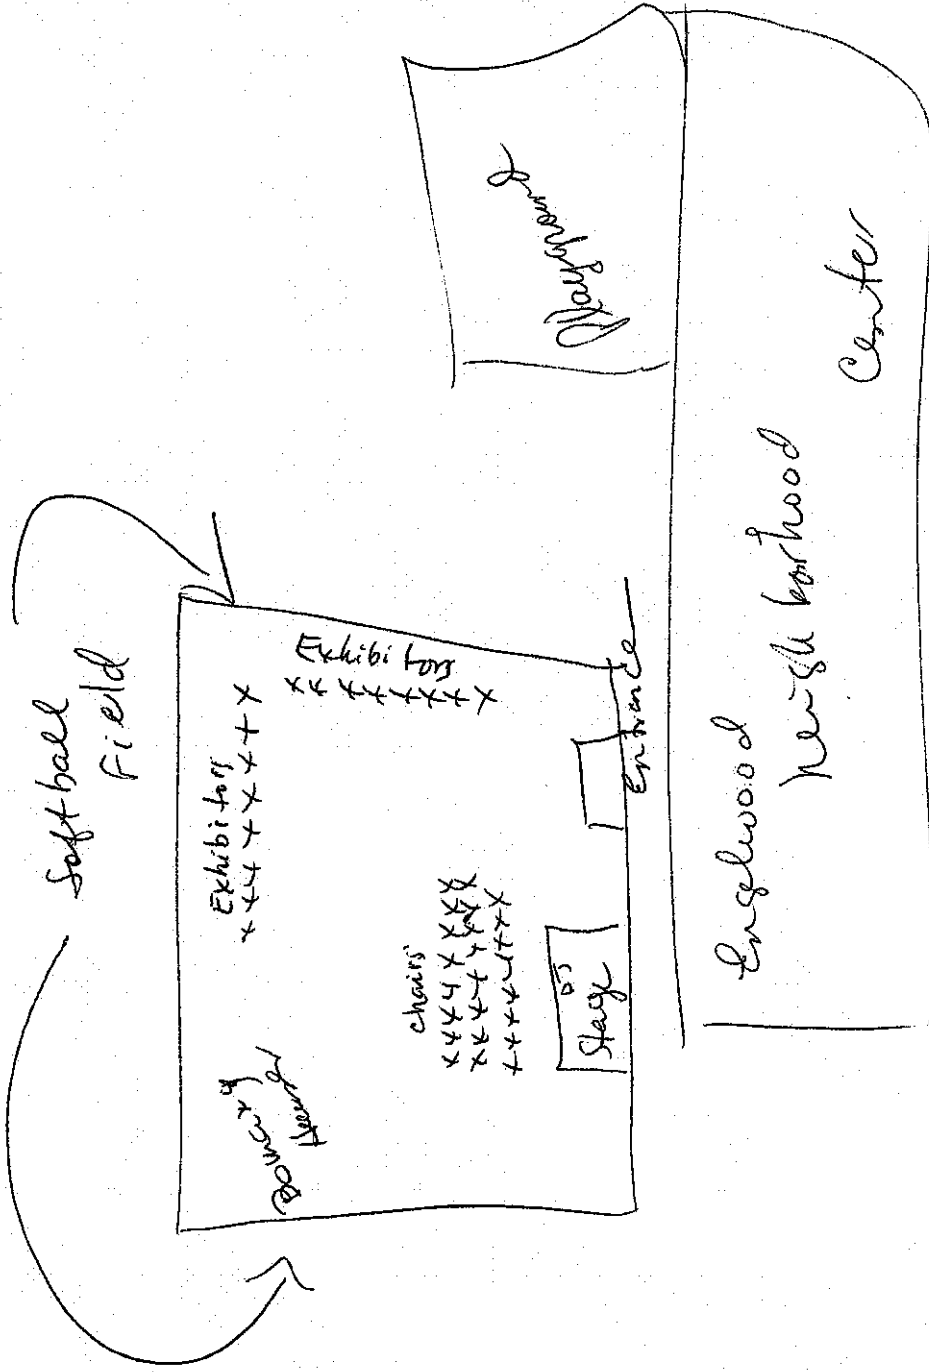 Softball
Field
Exhibitors
x x x x x x x + x
Exhibitors
x x x x x x x x x
Bouncy
House
chairs
x x x x x x x x
x x x x x x x x
x x x x x x x x
DJ
Stage
Entrance
Playground
Englewood
Neighborhood
Center